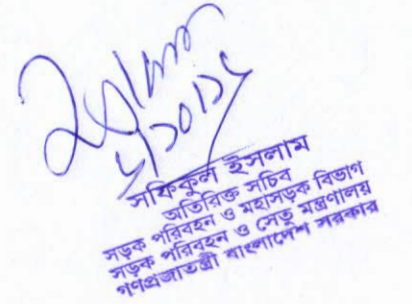 সফিকুল ইসলাম
অতিরিক্ত সচিব
সড়ক পরিবহন ও মহাসড়ক বিভাগ
সড়ক পরিবহন ও সেতু মন্ত্রণালয়
গণপ্রজাতন্ত্রী বাংলাদেশ সরকার